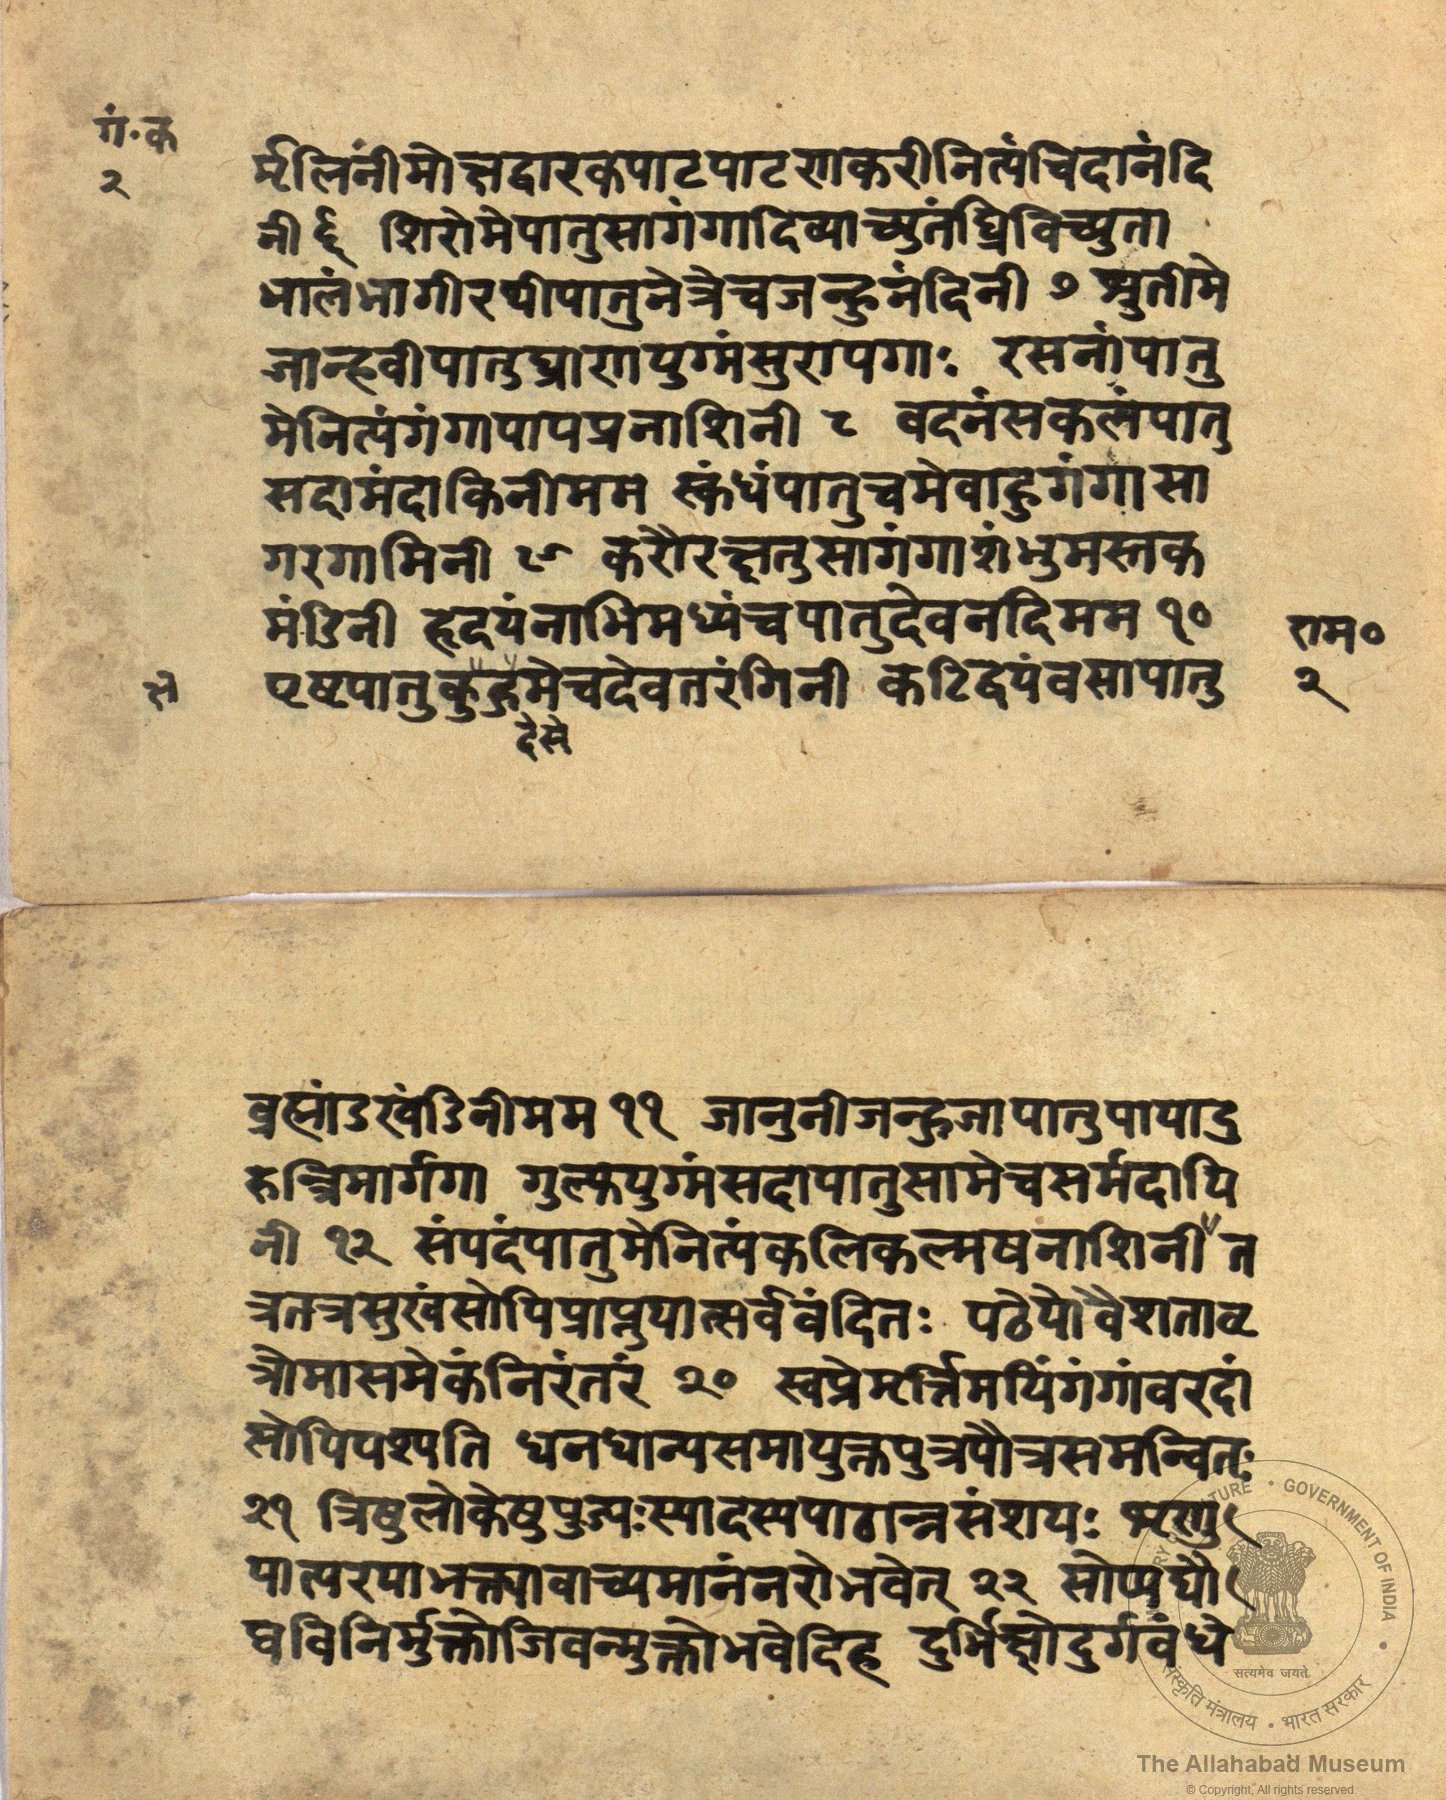 गं॰क
२
र्मलिनीमोक्षद्वारकपाटपाटणकरीनित्यंचिदानंदि
नी ६ शिरोमेपातुसागंगादिव्याच्युतंघ्रिविच्युता
भालंभागीरथीपातुनेत्रेचजन्हुनंदिनी ७ श्रुतीमे
जान्हवीपातुघ्राणयुग्मंसुरापगाः रसनांपातु
मेनित्यंगंगापापप्रनाशिनी ८ वदनंसकलंपातु
सदामंदाकिनीमम स्कंधंपातुचमेवाहुगंगासा
गरगामिनी ९ करौरक्षतुसागंगाशंभुमस्तक
मंडिनी हृदयंनाभिमध्यंचपातुदेवनदिमम १०
राम०
२
पृष्टपातुकुहुमेचदेवतरंगिनी कटिद्वयंवसापातु
ब्रह्मांडखंडिनीमम ११ जानुनीजन्हुजापातुपायादु
रुन्त्रिमार्गगा गुल्फयुग्मंसदापातुसामेचसर्मदायि
नी १२ संपदंपातुमेनित्यंकलिकल्मषनाशिनी त
त्रतत्रसुखंसोपिप्राप्नुयात्सर्ववंदितः पठेद्योवैशताव
त्रौमासमेकंनिरंतरं २० स्वप्नेमूर्त्तिमयिंगंगांवरदां
सोपिपश्यति धनधान्यसमायुक्तपुत्रपौत्रसमन्वितः
२१ त्रिषुलोकेषुपुज्यःस्यादस्यपाठान्नसंशयः श्रृणु
यात्परयाभक्त्यावाच्यमानंनरोभवेत् २२ सोप्यघौ
घविनिर्मुक्तोजिवन्मुक्तोभवेदिह दुर्भिक्षेदुर्गवंधे
GOVERNMENT OF INDIA
सत्यमेव जयते
संस्कृति मंत्रालय • भारत सरकार
The Allahabad Museum
© Copyright, All rights reserved.